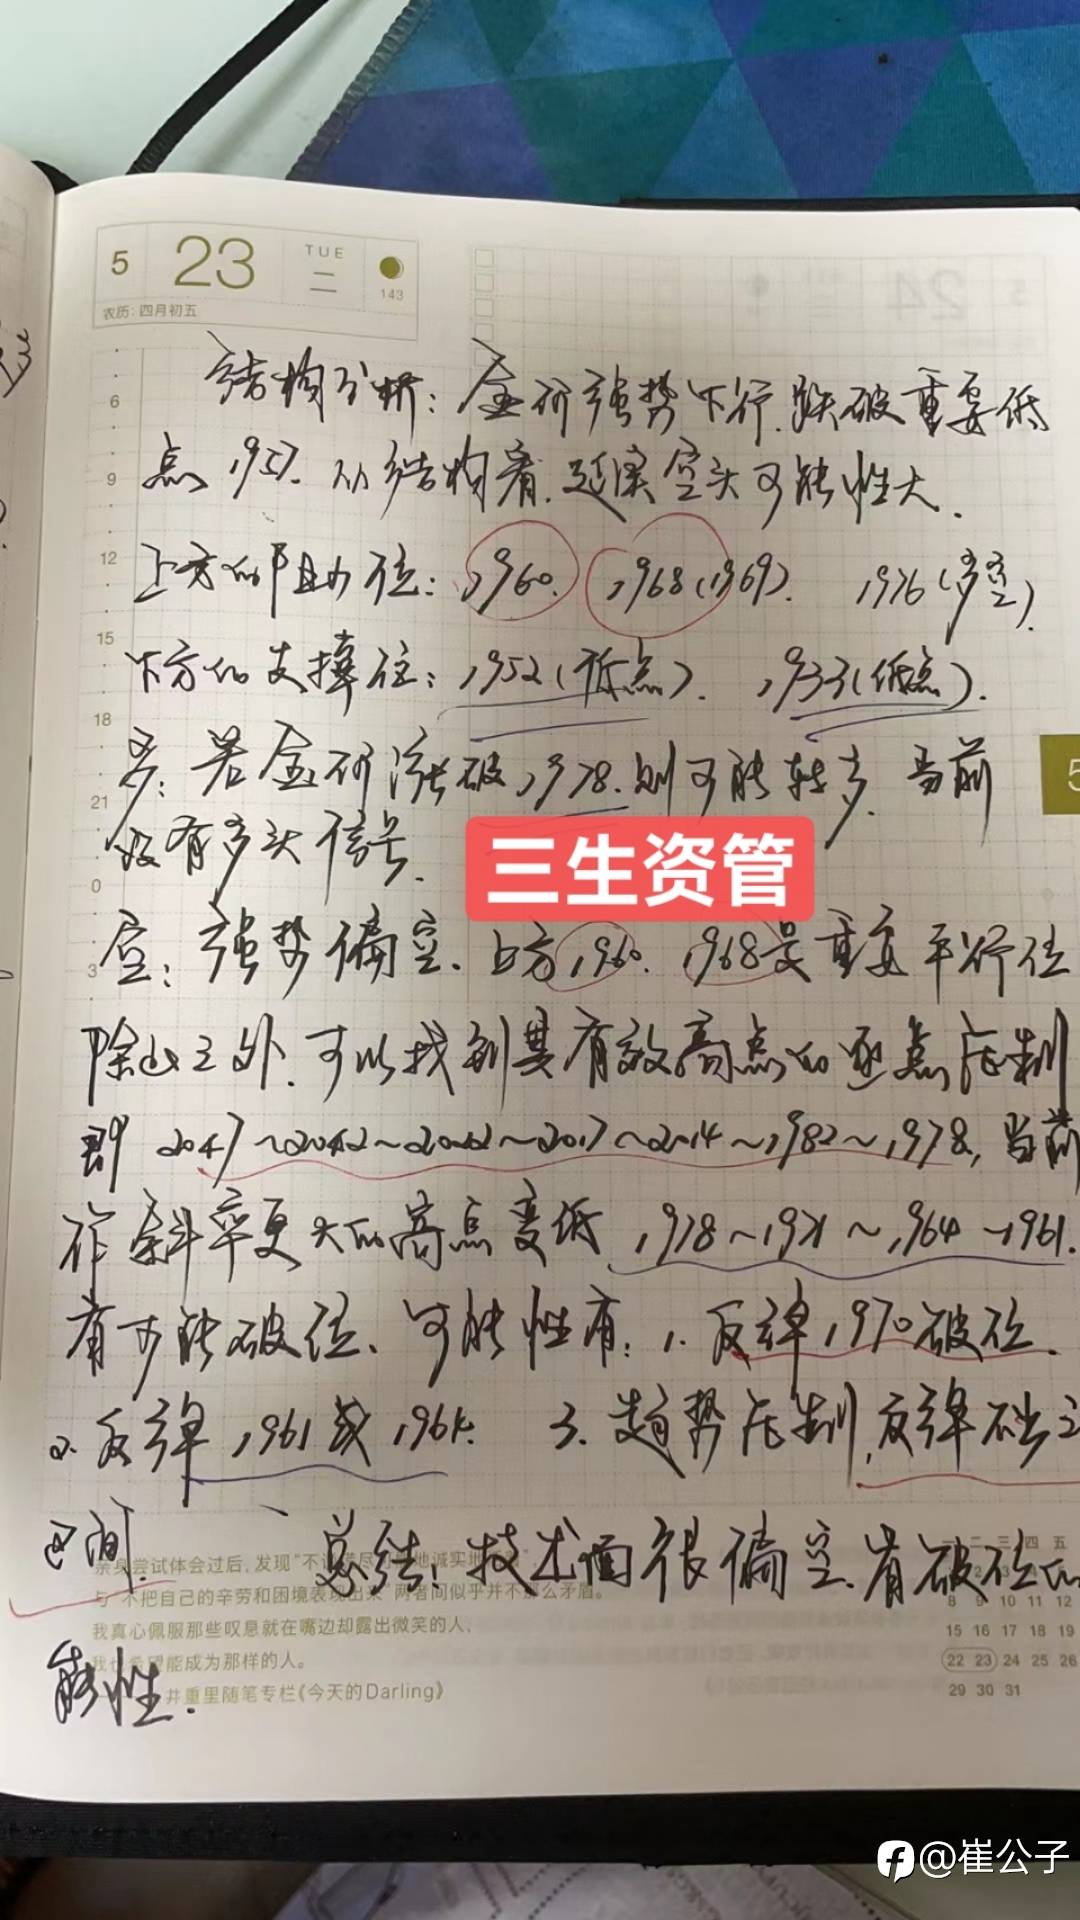 5 23 TUE 二 143
农历:四月初五
结构分析:金价强势下行.跌破重要低
点1957.从结构看.延续空头可能性大.
上方的阻力位:1960. 1968(1969). 1976(多空).
下方的支撑位:1952(低点). 1933(低点).
多:若金价涨破1978.则可能转多.当前
没有多头信号.
三生资管
空:强势偏空.上方1960. 1968是重要平行位
除此之外.可以找到其有效高点的逐点压制
即2047~2042~2022~2017~2014~1982~1978,当前
作斜率更大的高点变低 1978~1971~1964~1961.
有可能破位、可能性有:1.反弹1970破位.
2.反弹1961或1964. 3.趋势压制,反弹
区间. 总结:技术面很偏空.有破位的
能性.
亲身尝试体会过后,发现"不
与"不把自己的辛劳和困境表现出来"两者间似乎并不那么矛盾。
我真心佩服那些叹息就在嘴边却露出微笑的人,
我也希望能成为那样的人。
井重里随笔专栏《今天的Darling》
二 三 四 五
8 9 10 11 12
15 16 17 18 19
22 23 24 25 26
29 30 31
6
9
12
15
18
21
0
3
5
24
@崔公子